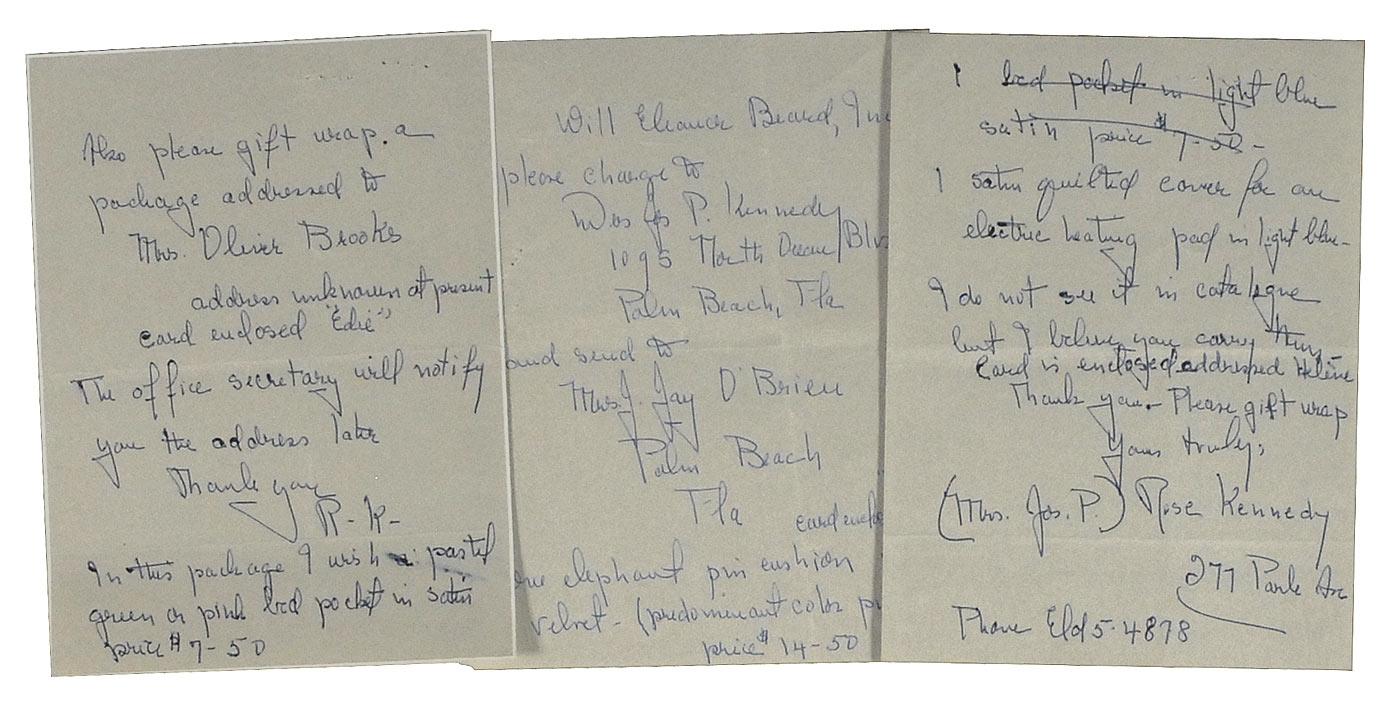 Also please gift wrap a
package addressed to
Mrs. Oliver Brooks
address unknown at present
card enclosed "Edie"
The office secretary will notify
you the address later
Thank you
R-K-
In this package I wish a pastel
green or pink bed pocket in satin
price $7-50
Will Eleanor Beard, Inc
please charge to
Mrs Jos P. Kennedy
1095 North Ocean Blv
Palm Beach, Fla
and send to
Mrs. J. Jay O'Brien
Palm Beach
Fla
card enclo
one elephant pin cushion
velvet - (predominant color p
price $14-50
1 bed pocket in light blue
satin price $7-50-
1 satin quilted cover for an
electric heating pad in light blue-
I do not see it in catalogue
but I believe you carry them
Card is enclosed addressed Helene
Thank you- Please gift wrap
Yours truly,
(Mrs. Jos. P.) Rose Kennedy
277 Park Ave
Phone Eld 5-4878